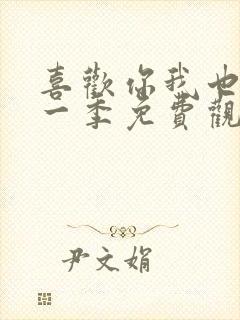 喜歡你我也
一季免費觀
尹文娟